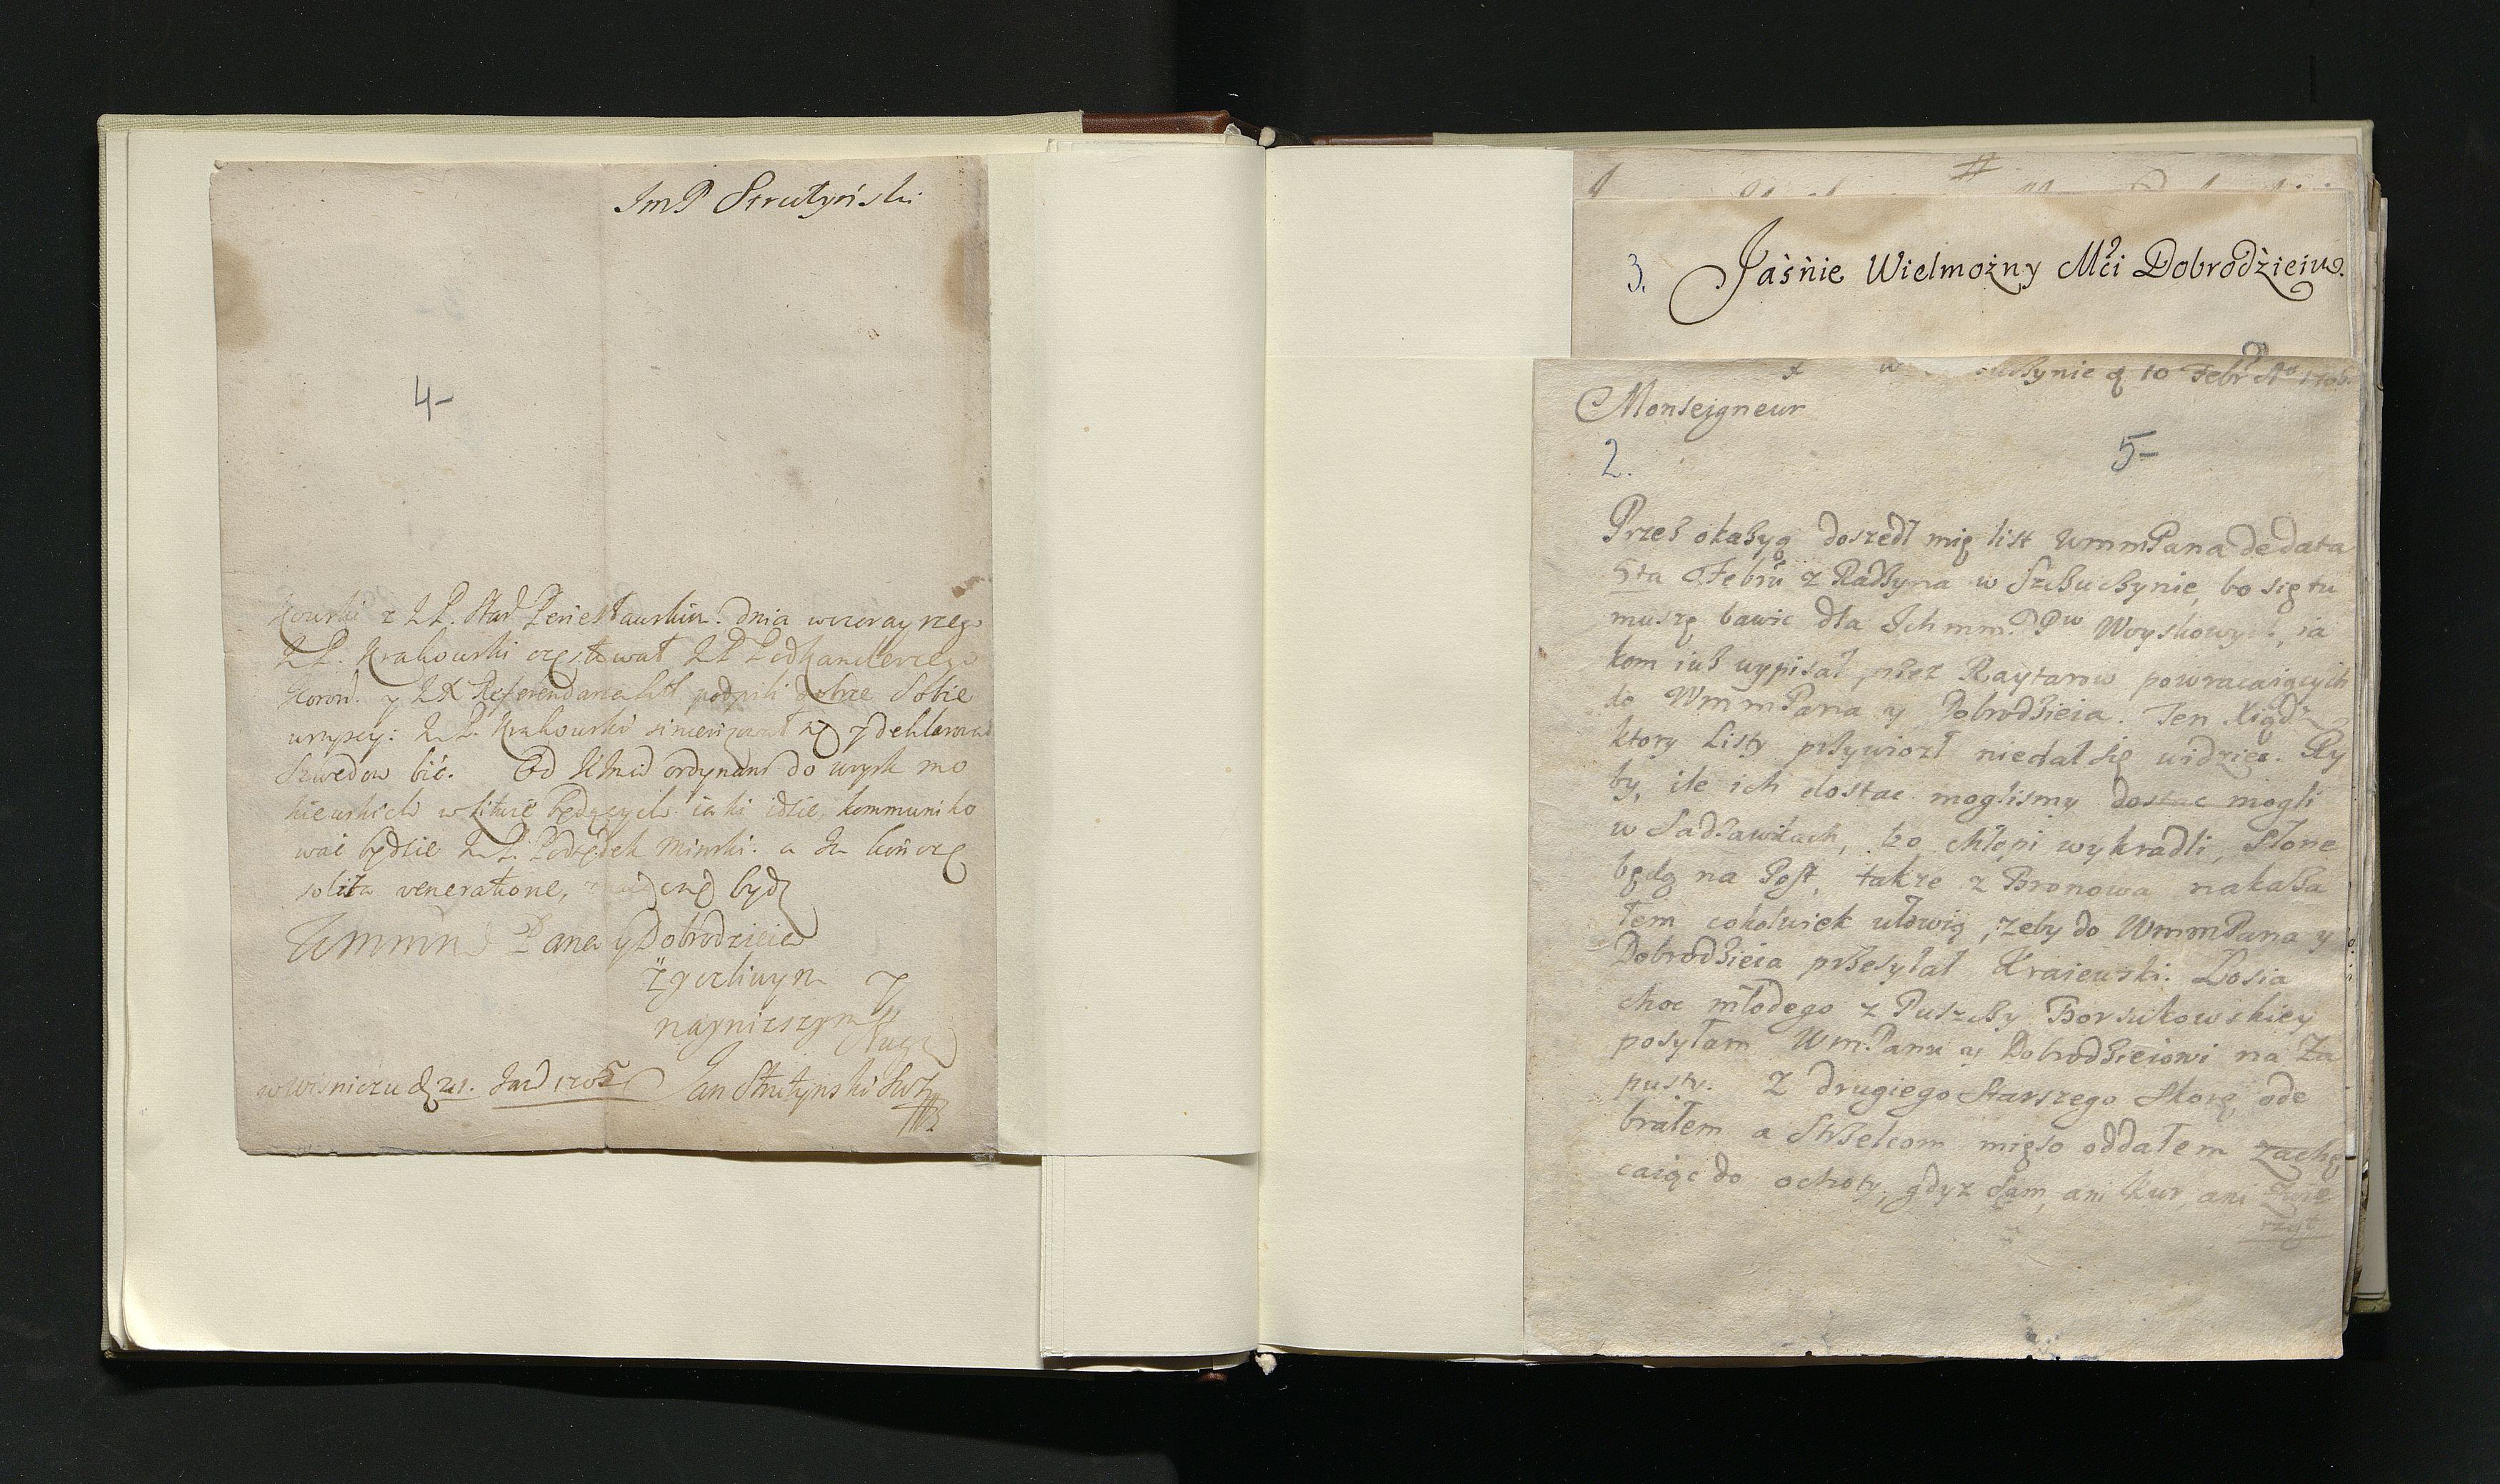 JmP Strutyński
4-
kowski z J P. Star Peniesławskim. dnia wczorayszego
J P. Krakowski częstował J P Podkanclerzego
Koron. y J X Referendarza Lit podpili dobrze Sobie
wszyscy: J P. Krakowski y deklarował
Szwedow bić. Od ordynans do woysk mo
skiewskich w Litwie będących iaki idzie, kommuniko
wać będzie J P. Podsędek Minski. a Ja kończę
solita veneratione, być
Wmmm Pana y Dobrodzieia
życzliwym y
naynizszym Sługą
w Wisniczu d 21. Jan 1705 Jan Strutynski
3. Jaśnie Wielmożny Mći Dobrodźieiu.
10 Febr Ao 1706.
Monseigneur
2.
5-
Przez okazyą doszedł mię list WmmPana de data
5ta Febru z Radzyna w Szczuczynie, bo się tu
muszę bawic dla Ichmm. Pw Woyskowych, ia
kom iuż wypisał, przez Raytarow powracaiących
do WmmPana y Dobrodzieia. Ten Xiądz
ktory Listy przywiozł niedał się widziec. Ry
by, ile ich dostac moglismy dostac mogli
w Sadzawkach, bo chłopi wykradli, Słone
będą na Post, takze z Bronowa nakaza
łem cokolwiek ułowią, żeby do WmmPana y
Dobrodzieia przesyłał Kraiewski. Łosia
choc młodego z Puszczy Borsukowskiey
posyłam WmPanu y Dobrodzieiowi na Za
pusty. Z drugiego Starszego Skorę ode
brałem a Strzelcom mięso oddałem zachę
caiąc do ochoty, gdyz Sam, ani kur, ani Zwie
rzyt